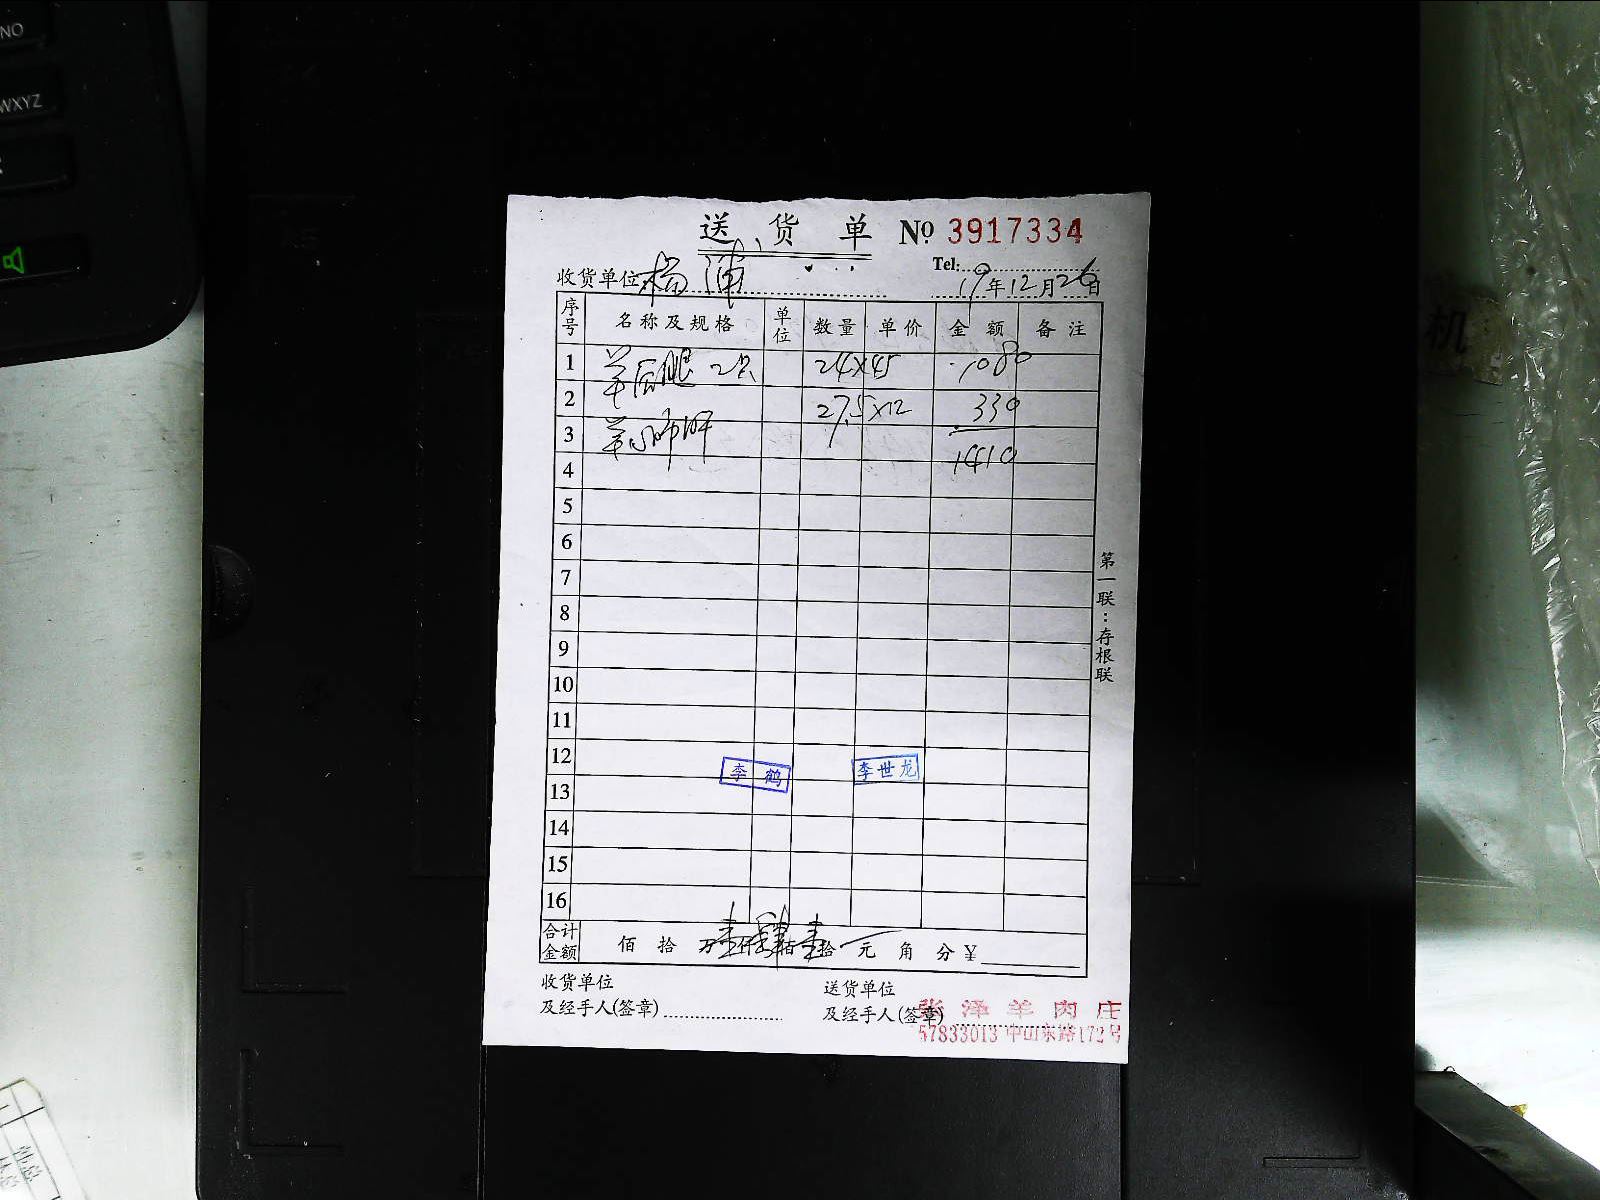 NO
WXYZ
送货单 №. 3917334
Tel:
收货单位 杨浦 19年12月26日
序号 名称及规格 单位 数量 单价 金额 备注
1 羊后腿 2只 24×45 1080
2 27.5×12 330
3 羊心肺肝
1410
4
5
6
7
8
9
10
11
12
李鹤 李世龙
13
14
15
16
合计金额 佰拾万壹仟肆佰壹拾元角分¥
收货单位 送货单位
及经手人(签章) 及经手人(签章)
张泽羊肉庄
57833013 中山东路172号
第一联:存根联
机